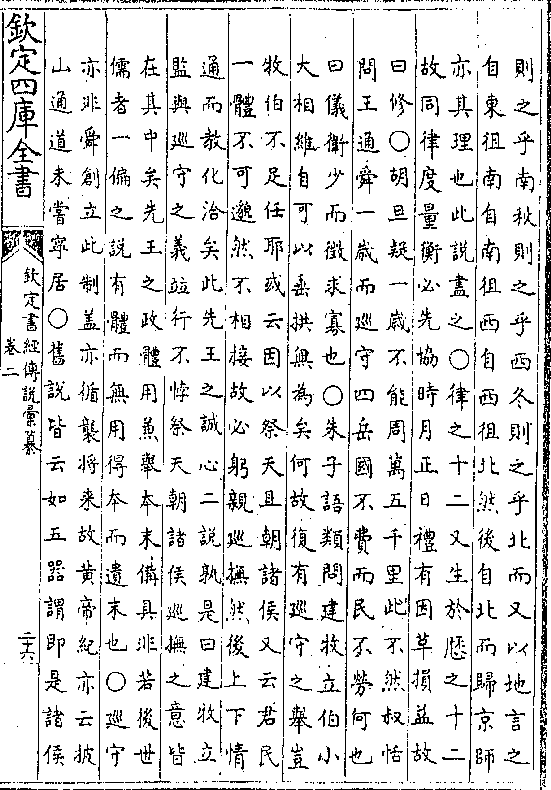 則之乎南秋則之乎西冬則之乎北而又以地言之
自東徂南自南徂西自西徂北然後自北而歸京師
亦其理也此説盡之○律之十二又生於歴之十二
故同律度量衡必先協時月正日禮有因革損益故
曰修○胡旦疑一歳不能周萬五千里此不然叔恬
問王通舜一歳而巡守四岳國不費而民不勞何也
曰儀衛少而徴求寡也○朱子語類問建牧立伯小
大相維自可以垂拱無為矣何故復有巡守之舉豈
牧伯不足任耶或云因以祭天且朝諸侯又云君民
一體不可邈然不相接故必躬親巡撫然後上下情
通而教化洽矣此先王之誠心二説孰是曰建牧立
監與巡守之義並行不悖祭天朝諸侯巡撫之意皆
在其中矣先王之政體用兼舉本末備具非若後世
儒者一偏之説有體而無用得本而遺末也○巡守
亦非舜創立此制盖亦循襲將来故黄帝紀亦云披
山通道未嘗寧居○舊説皆云如五器謂即是諸侯
欽定四庫全書
欽定書經傳說彙纂
卷二
二十六